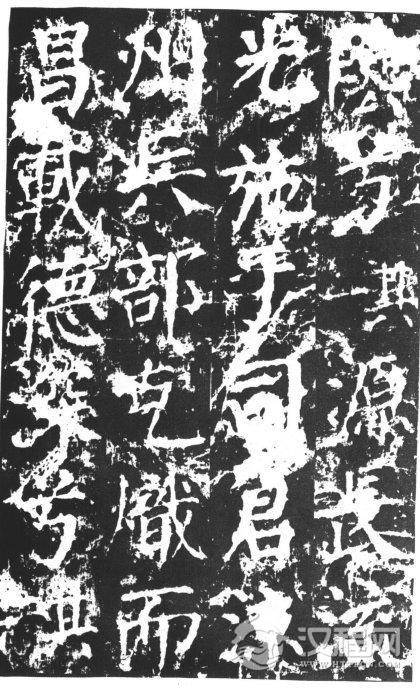 兮其一源長
光施于司君
州兵部克熾而
昌載德深兮
汉程网